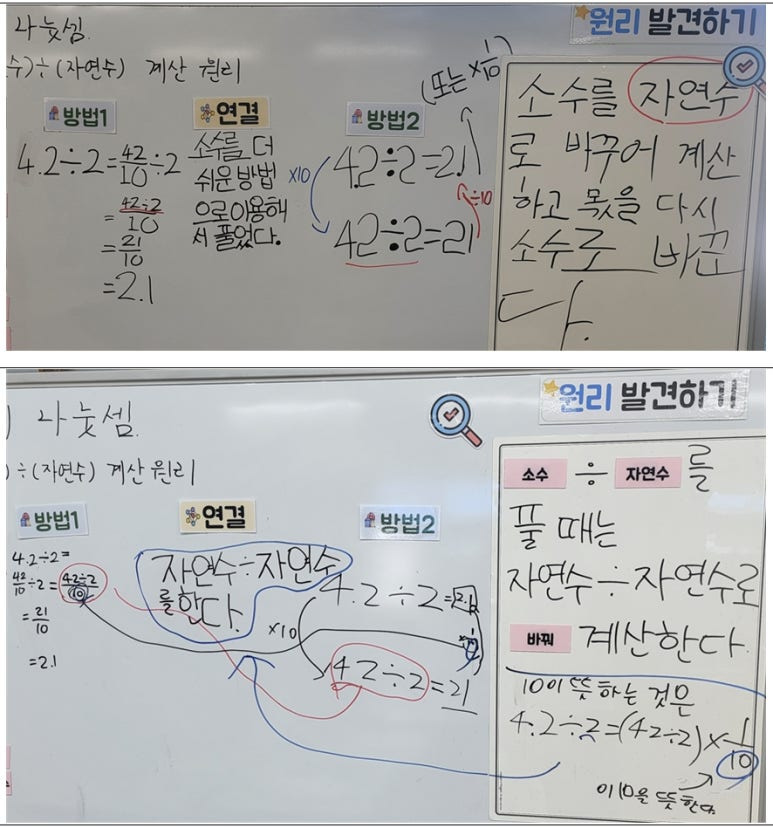 나눗셈.
수)÷(자연수) 계산 원리
방법1
4.2÷2=42/10÷2
=42÷2/10
=21/10
=2.1
연결
소수를 더
쉬운방법
으로이용해
서 풀었다.
방법2
(또는 ×1/10)
4.2÷2=2.1
×10
÷10
42÷2=21
원리 발견하기
소수를 자연수
로 바꾸어 계산
하고 몫을 다시
소수로 바꾼
다.
) 나눗셈.
)÷(자연수) 계산 원리
방법1
4.2÷2=
42/10÷2=42÷2/10
=21/10
=2.1
연결
자연수÷자연수
를한다.
방법2
4.2÷2=2.1
×10
42÷2=21
원리 발견하기
소수 ÷ 자연수 를
풀 때는
자연수÷자연수로
바꿔 계산한다.
10이 뜻하는 것은
4.2÷2=(42÷2)×1/10
이10을 뜻한다.